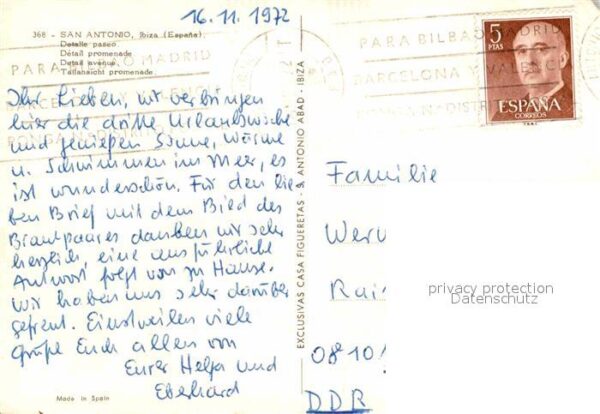 16.11.1972
368 - SAN ANTONIO, Ibiza (España)
Detalle paseo
Détail promenade
Detail avenue
Teilansicht promenade
Ihr Lieben, wir verbringen
hier die dritte Urlaubswoche
und genießen Sonne, Wärme
u. Schwimmen im Meer, es
ist wunderschön. Für den lie
ben Brief mit dem Bild des
Brautpaares danken wir sehr
herzlich, eine ausführliche
Antwort folgt von zu Hause.
Wir haben uns sehr darüber
gefreut. Einstweilen viele
Grüße Euch allen von
Eurer Helga und
Eberhard
Made in Spain
EXCLUSIVAS CASA FIGUERETAS - S. ANTONIO ABAD - IBIZA
PARA BILBAO MADRID
BARCELONA Y VALENCIA
5
PTAS
ESPAÑA
CORREOS
Familie
Wern
Rai
privacy protection
Datenschutz
0810
DDR